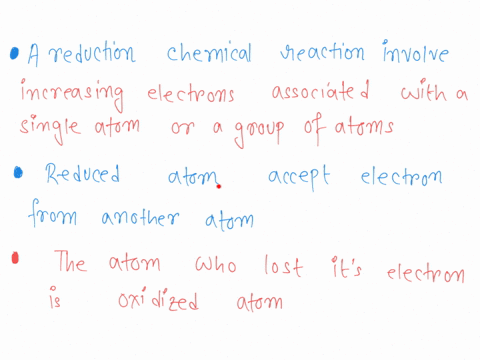 • A reduction chemical reaction involve
increasing electrons associated with a
single atom or a group of atoms
• Reduced atom accept electron
from another atom
• The atom who lost it's electron
is oxidized atom